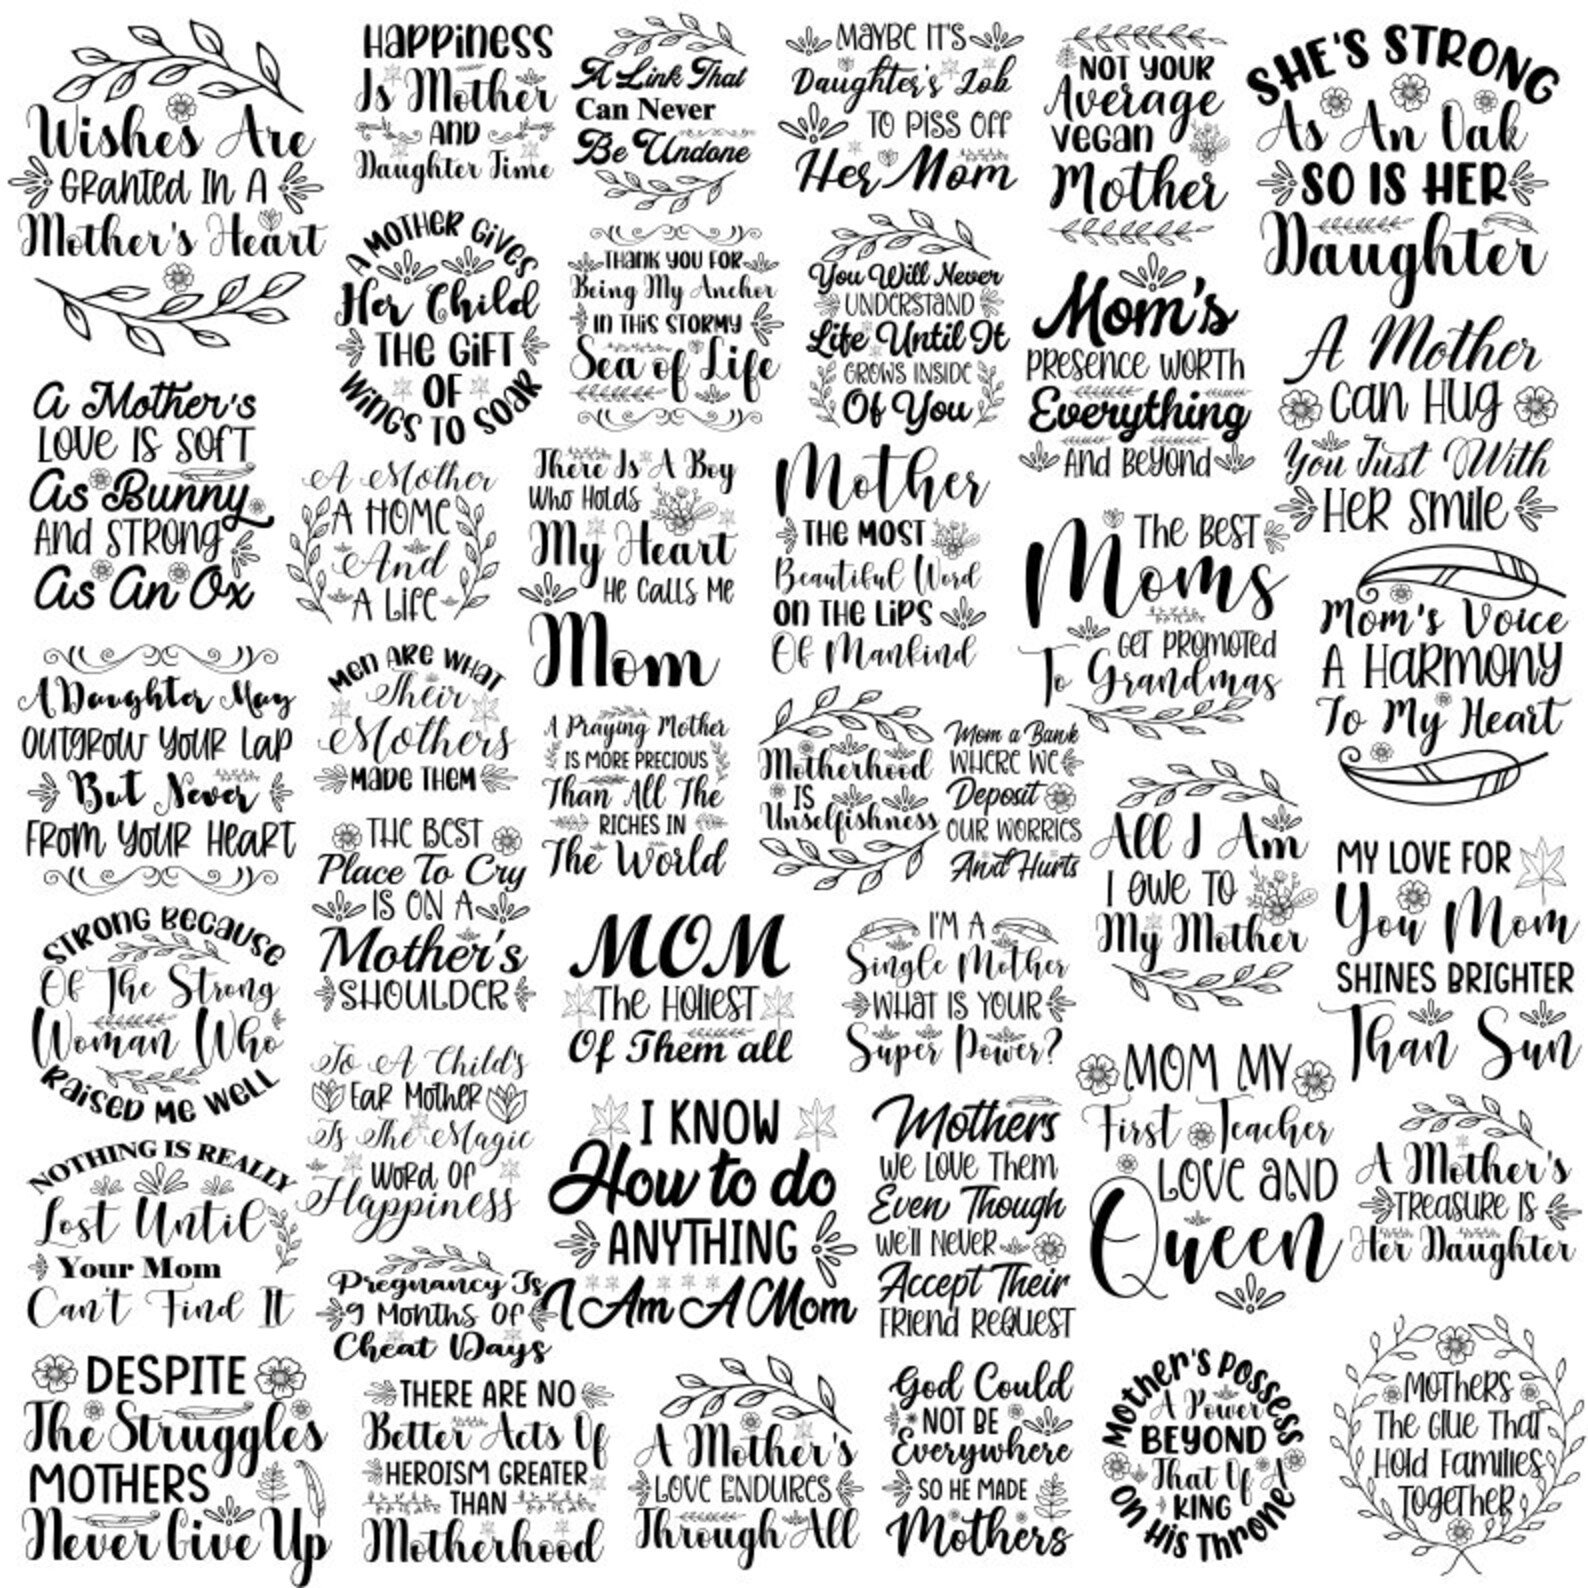 Wishes Are
Granted In A
Mother's Heart
Happiness
Is Mother
And
Daughter Time
A Link That
Can Never
Be Undone
Maybe It's
Daughter's Job
To Piss Off
Her Mom
Not Your
Average
Vegan
Mother
She's Strong
As An Oak
So Is Her
Daughter
A Mother Gives
Her Child
The Gift
Of
Wings To Soar
Thank You For
Being My Anchor
In This Stormy
Sea of Life
You Will Never
Understand
Life Until It
Grows Inside
Of You
Mom's
Presence Worth
Everything
And Beyond
A Mother
Can Hug
You Just With
Her Smile
A Mother's
Love Is Soft
As Bunny
And Strong
As An Ox
A Mother
A Home
And
A Life
There Is A Boy
Who Holds
My Heart
He Calls Me
Mom
Mother
The Most
Beautiful Word
On The Lips
Of Mankind
The Best
Moms
Get Promoted
To Grandmas
Mom's Voice
A Harmony
To My Heart
A Daughter May
Outgrow Your Lap
But Never
From Your Heart
Men Are What
Their
Mothers
Made Them
A Praying Mother
Is More Precious
Than All The
Riches In
The World
Motherhood
Is
Unselfishness
Mom a Bank
Where We
Deposit
Our Worries
And Hurts
All I Am
I Owe To
My Mother
My Love For
You Mom
Shines Brighter
Than Sun
Strong Because
Of The Strong
Woman Who
Raised Me Well
The Best
Place To Cry
Is On A
Mother's
Shoulder
MOM
The Holiest
Of Them all
I'm A
Single Mother
What Is Your
Super Power?
To A Child's
Ear Mother
Is The Magic
Word Of
Happiness
I Know
How to do
Anything
I Am A Mom
Mothers
We Love Them
Even Though
We'll Never
Accept Their
Friend Request
Mom My
First Teacher
Love And
Queen
A Mother's
Treasure Is
Her Daughter
Nothing Is Really
Lost Until
Your Mom
Can't Find It
Pregnancy Is
9 Months Of
Cheat Days
Despite
The Struggles
Mothers
Never Give Up
There Are No
Better Acts Of
Heroism Greater
Than
Motherhood
A Mother's
Love Endures
Through All
God Could
Not Be
Everywhere
So He Made
Mothers
Mother's Possess
A Power
Beyond
That Of A
King
On His Throne
Mothers
The Glue That
Hold Families
Together